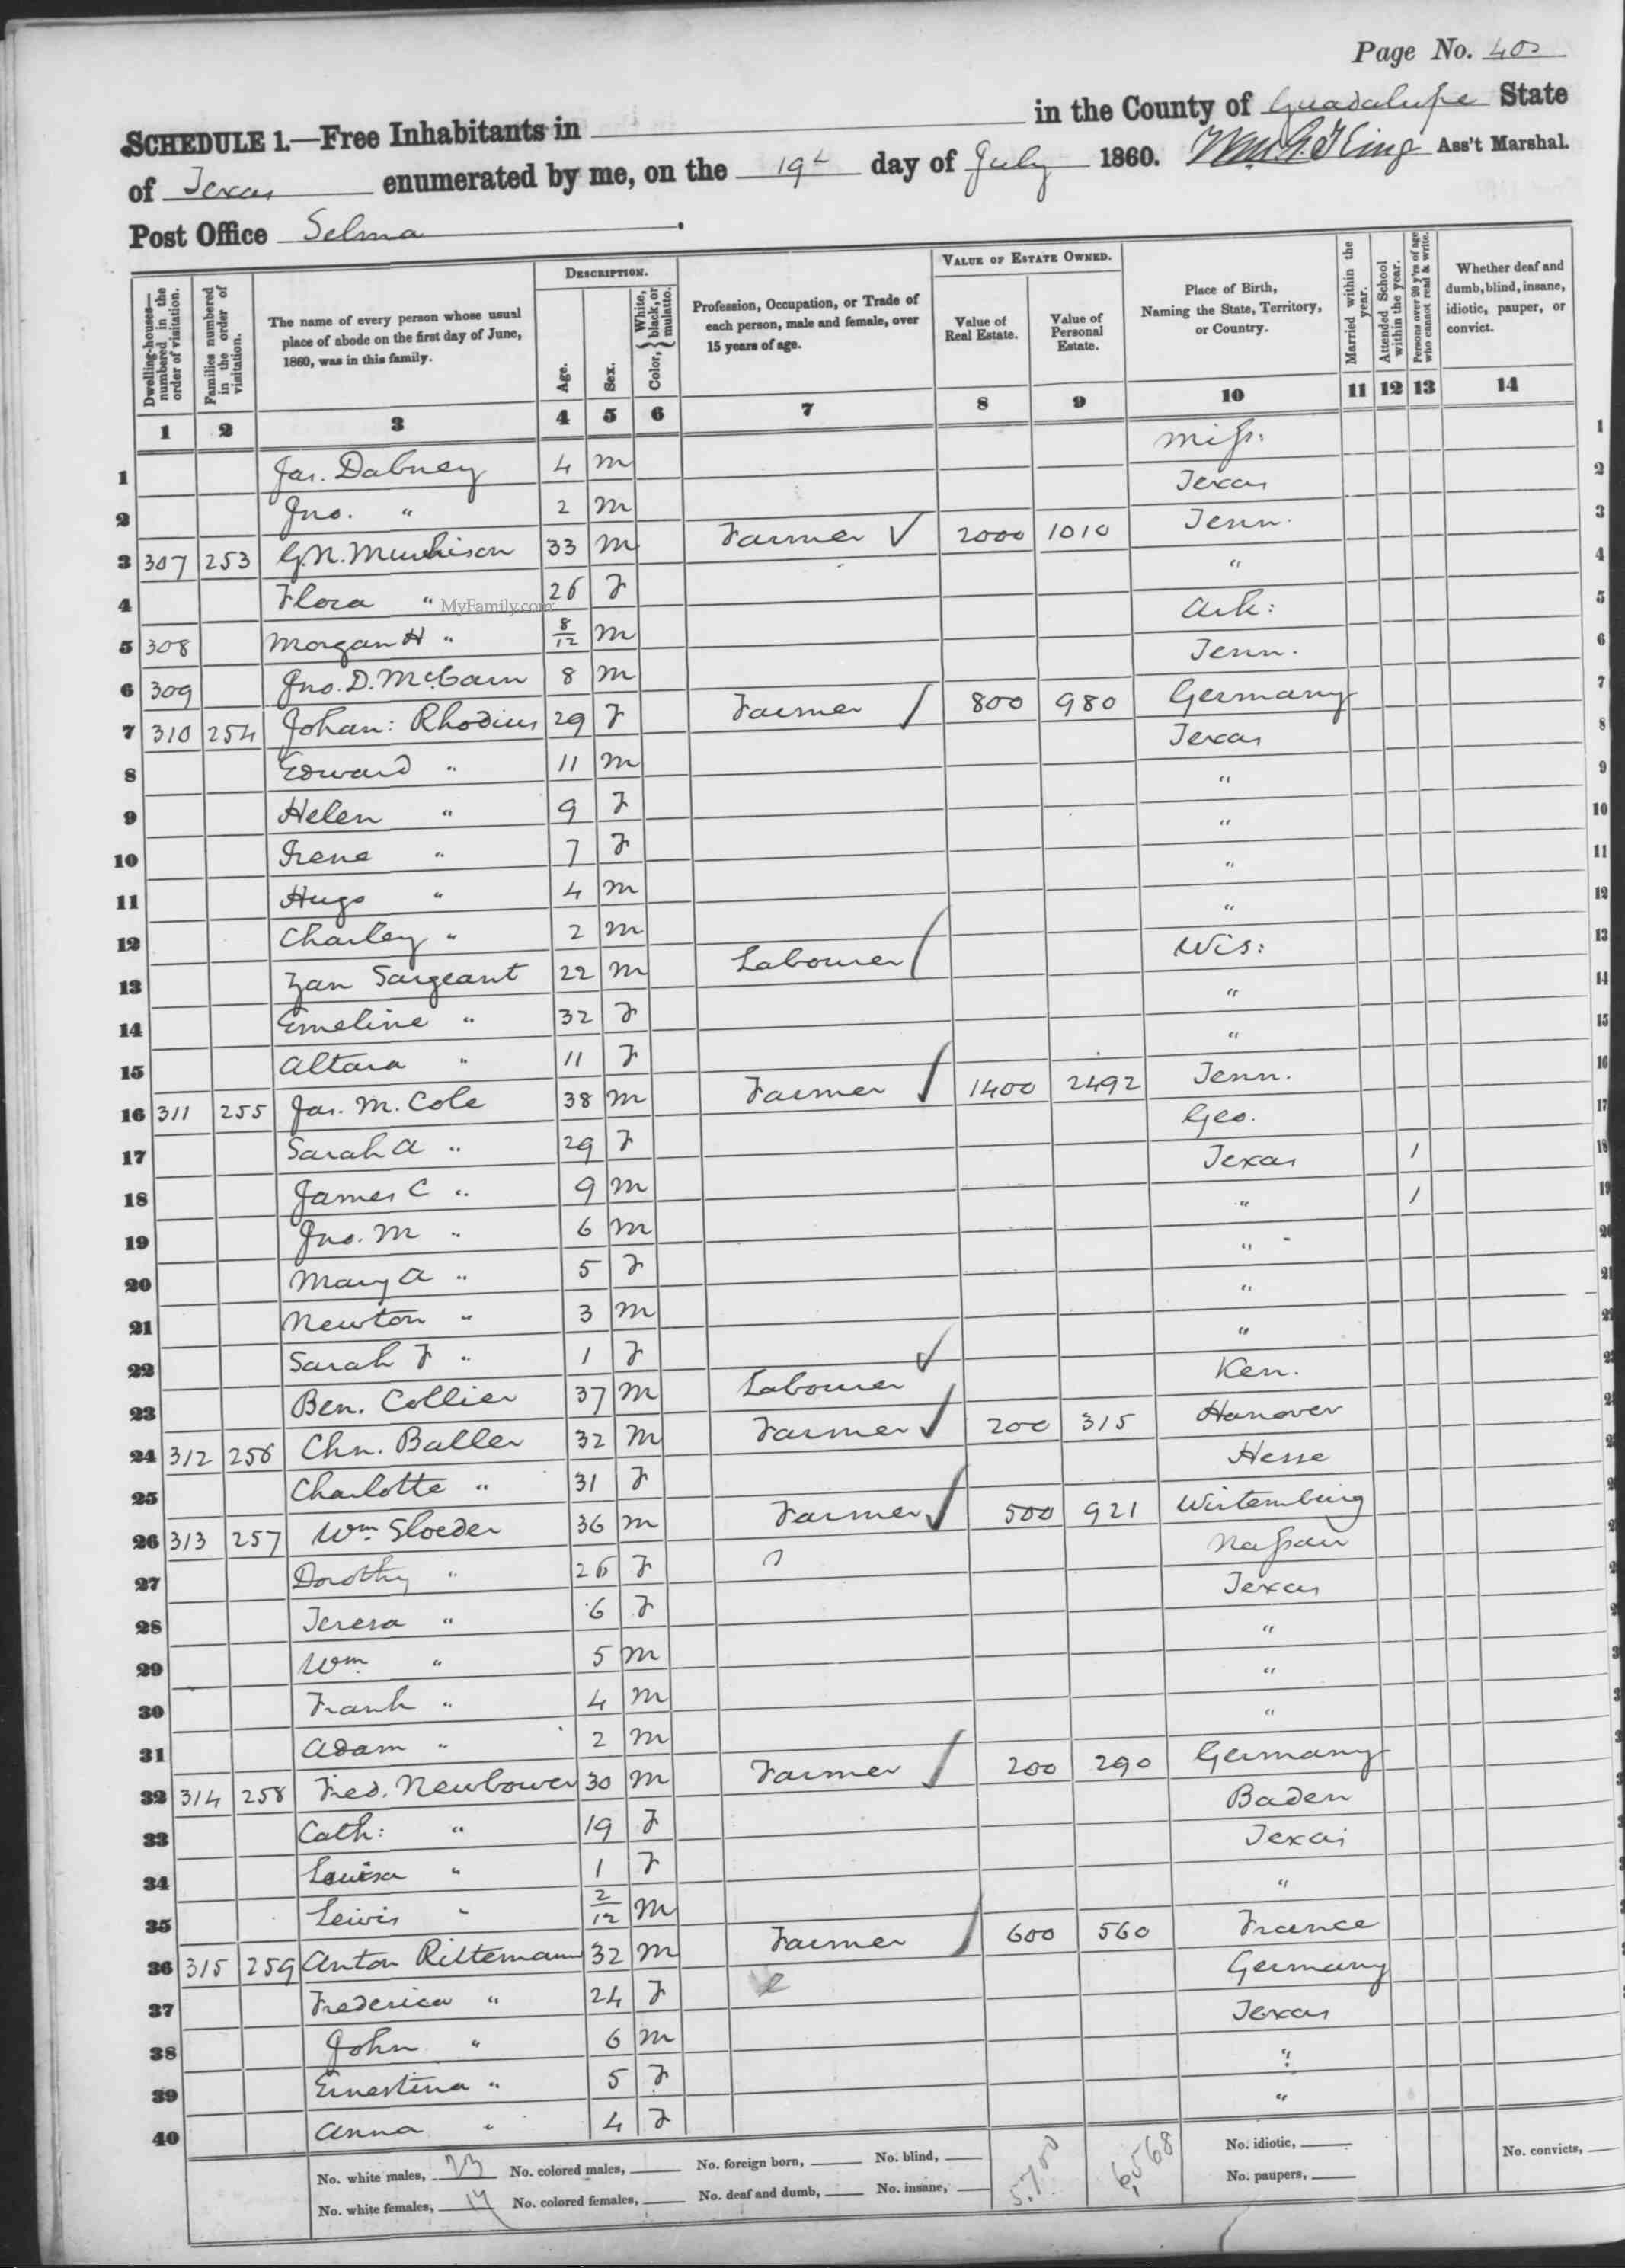 Page No. 40
SCHEDULE 1.—Free Inhabitants in in the County of Guadalupe State
of Texas enumerated by me, on the 19 day of July 1860. Wm. G. King Ass't Marshal.
Post Office Selma
Dwelling-houses—numbered in the order of visitation. Families numbered in the order of visitation. The name of every person whose usual place of abode on the first day of June, 1860, was in this family. DESCRIPTION. Age. Sex. Color, { White, black, or mulatto. Profession, Occupation, or Trade of each person, male and female, over 15 years of age. VALUE OF ESTATE OWNED. Value of Real Estate. Value of Personal Estate. Place of Birth, Naming the State, Territory, or Country. Married within the year. Attended School within the year. Persons over 20 y'rs of age who cannot read & write. Whether deaf and dumb, blind, insane, idiotic, pauper, or convict.
1 2 3 4 5 6 7 8 9 10 11 12 13 14
1 Jas. Dabney 4 m Miss. 1
2 Jno. " 2 m Texas 2
3 307 253 G. N. Murchison 33 m Farmer 2000 1010 Tenn. 3
4 Flora " 26 F " 4
MyFamily.com
5 308 Morgan H " 8/12 m Ark: 5
6 309 Jno. D. McCarn 8 m Tenn. 6
7 310 254 Johan: Rhodius 29 F Farmer 800 980 Germany 7
8 Edward " 11 m Texas 8
9 Helen " 9 F " 9
10 Irene " 7 F " 10
11 Hugo " 4 m " 11
12 Charley " 2 m " 12
13 Zan Sargeant 22 m Labourer Wis: 13
14 Emeline " 32 F " 14
15 Altara " 11 F " 15
16 311 255 Jas. M. Cole 38 m Farmer 1400 2492 Tenn. 16
17 Sarah A " 29 F Geo. 17
18 James C " 9 m Texas 1 18
19 Jno. M " 6 m " 1 19
20 Mary A " 5 F " 20
21 Newton " 3 m " 21
22 Sarah F " 1 F "
23 Ben. Collier 37 m Labourer Ken.
24 312 256 Chn. Baller 32 m Farmer 200 315 Hanover
25 Charlotte " 31 F Hesse
26 313 257 Wm Sloeder 36 m Farmer 500 921 Wirtemburg
27 Dorothy " 26 F Nassau
28 Teresa " 6 F Texas
29 Wm " 5 m "
30 Frank " 4 m "
31 Adam " 2 m "
32 314 258 Fred. Newbower 30 m Farmer 200 290 Germany
33 Cath: " 19 F Baden
34 Louisa " 1 F Texas
35 Lewis " 2/12 m "
36 315 259 Anton Riltemann 32 m Farmer 600 560 France
37 Frederica " 24 F Germany
38 John " 6 m Texas
39 Ernestina " 5 F "
40 Anna " 4 F "
No. white males, 23 No. colored males, No. foreign born, No. blind, 5700 6568 No. idiotic, No. convicts,
No. white females, 17 No. colored females, No. deaf and dumb, No. insane, No. paupers,